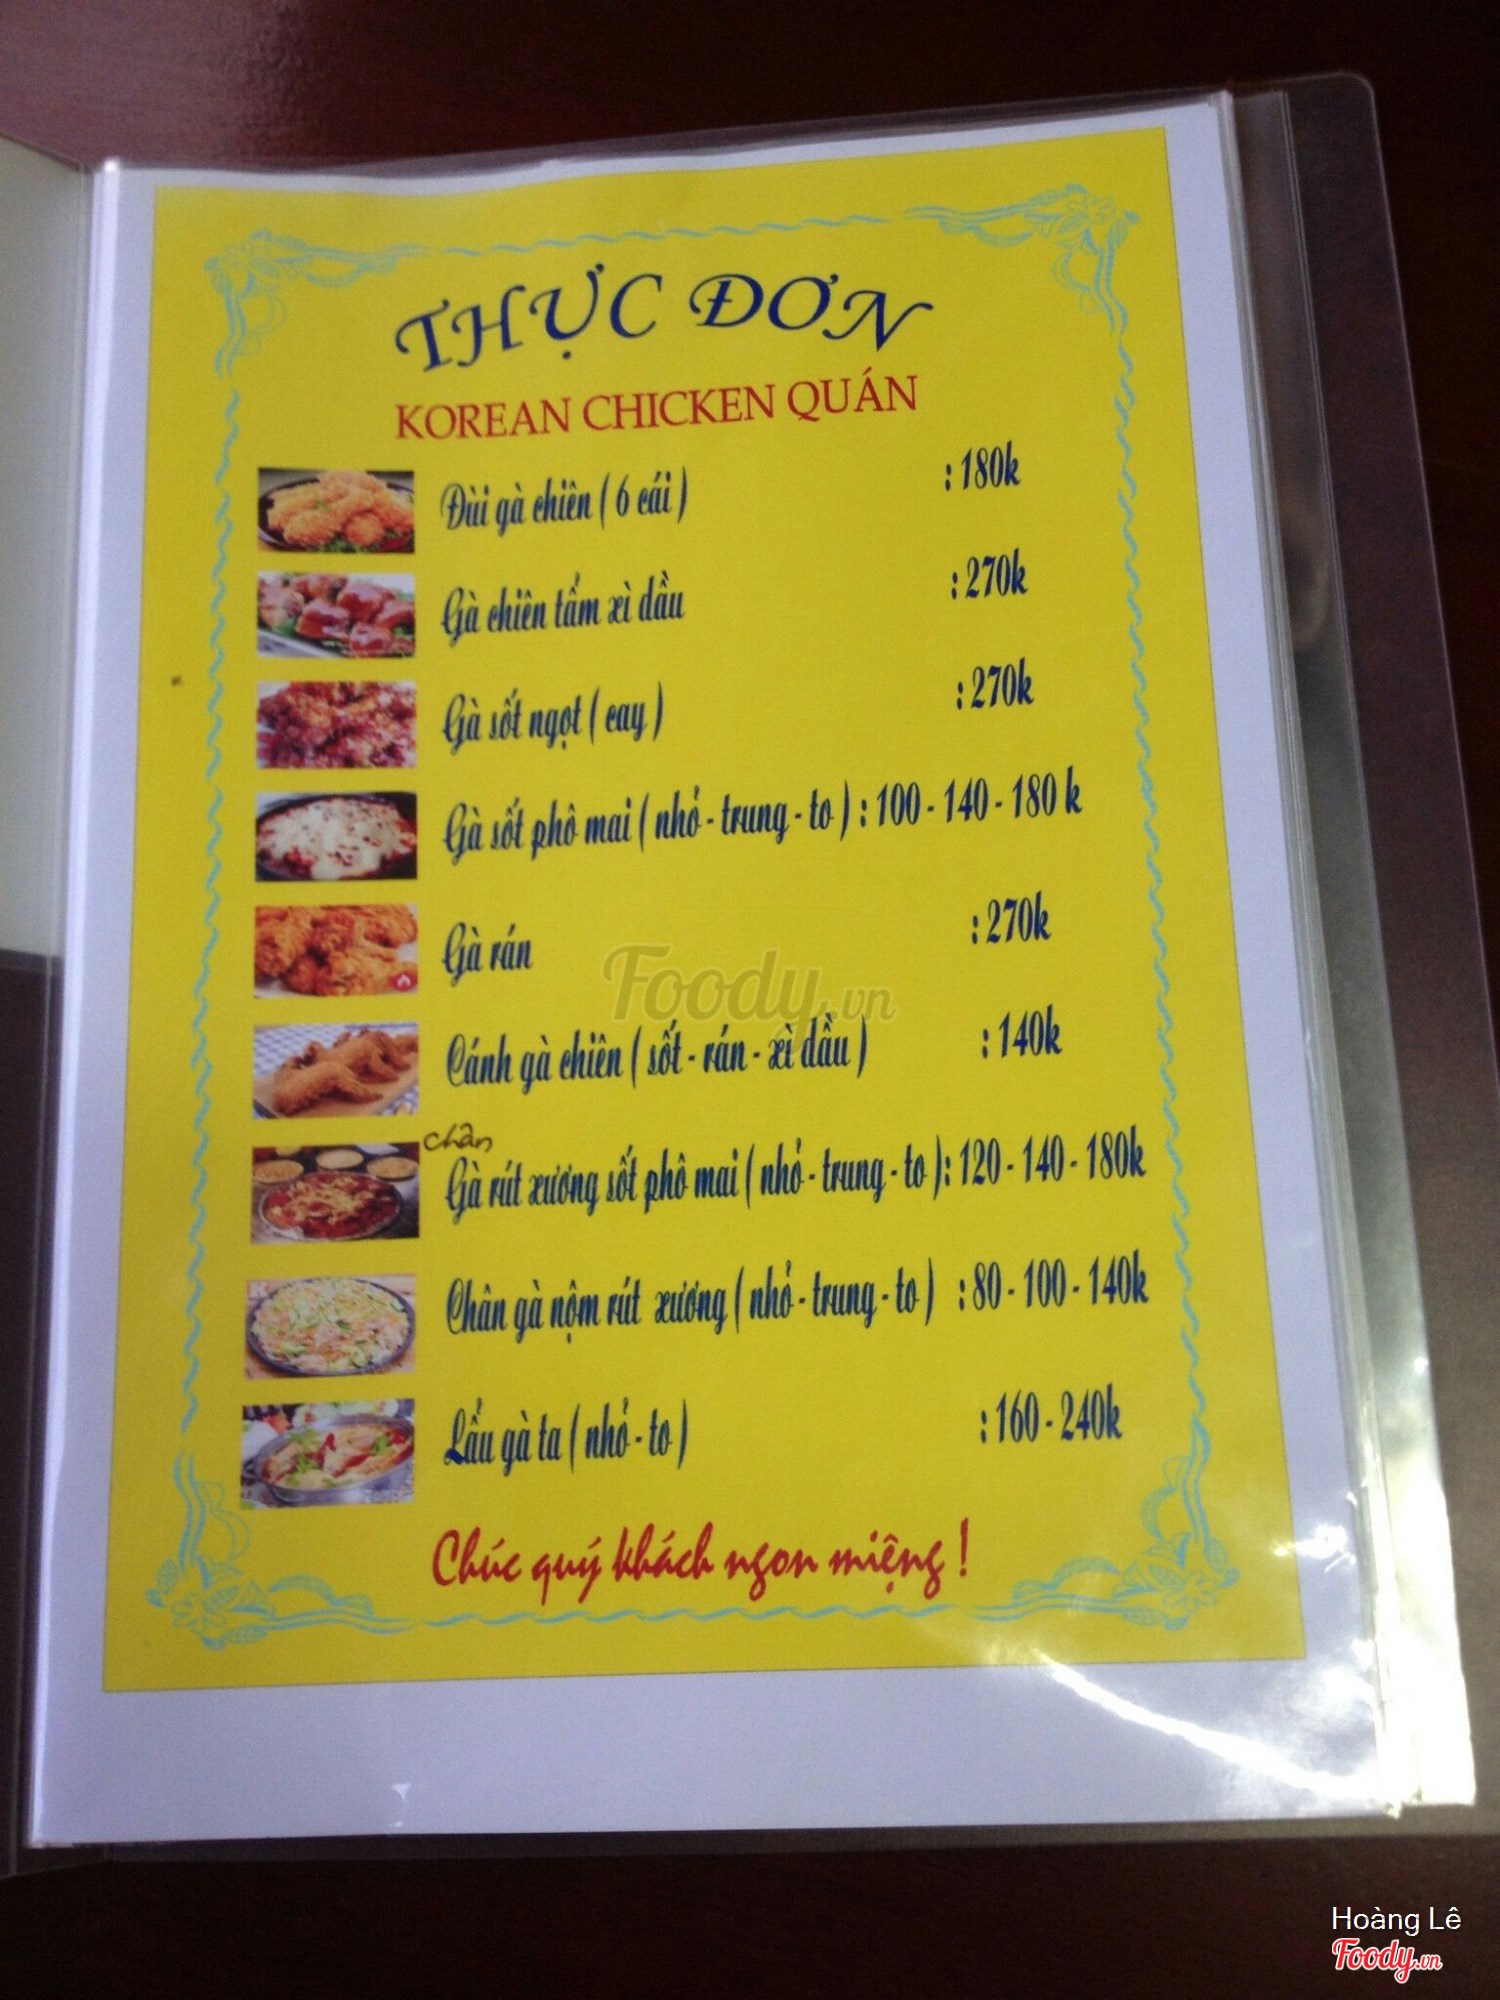 THỰC ĐƠN
KOREAN CHICKEN QUÁN
Đùi gà chiên ( 6 cái ) : 180k
Gà chiên tẩm xì dầu : 270k
Gà sốt ngọt ( cay ) : 270k
Gà sốt phô mai ( nhỏ - trung - to ) : 100 - 140 - 180 k
Gà rán : 270k
Foody.vn
Cánh gà chiên ( sốt - rán - xì dầu ) : 140k
chân
Gà rút xương sốt phô mai ( nhỏ - trung - to ) : 120 - 140 - 180k
Chân gà nộm rút xương ( nhỏ - trung - to ) : 80 - 100 - 140k
Lẩu gà ta ( nhỏ - to ) : 160 - 240k
Chúc quý khách ngon miệng !
Hoàng Lê
Foody.vn